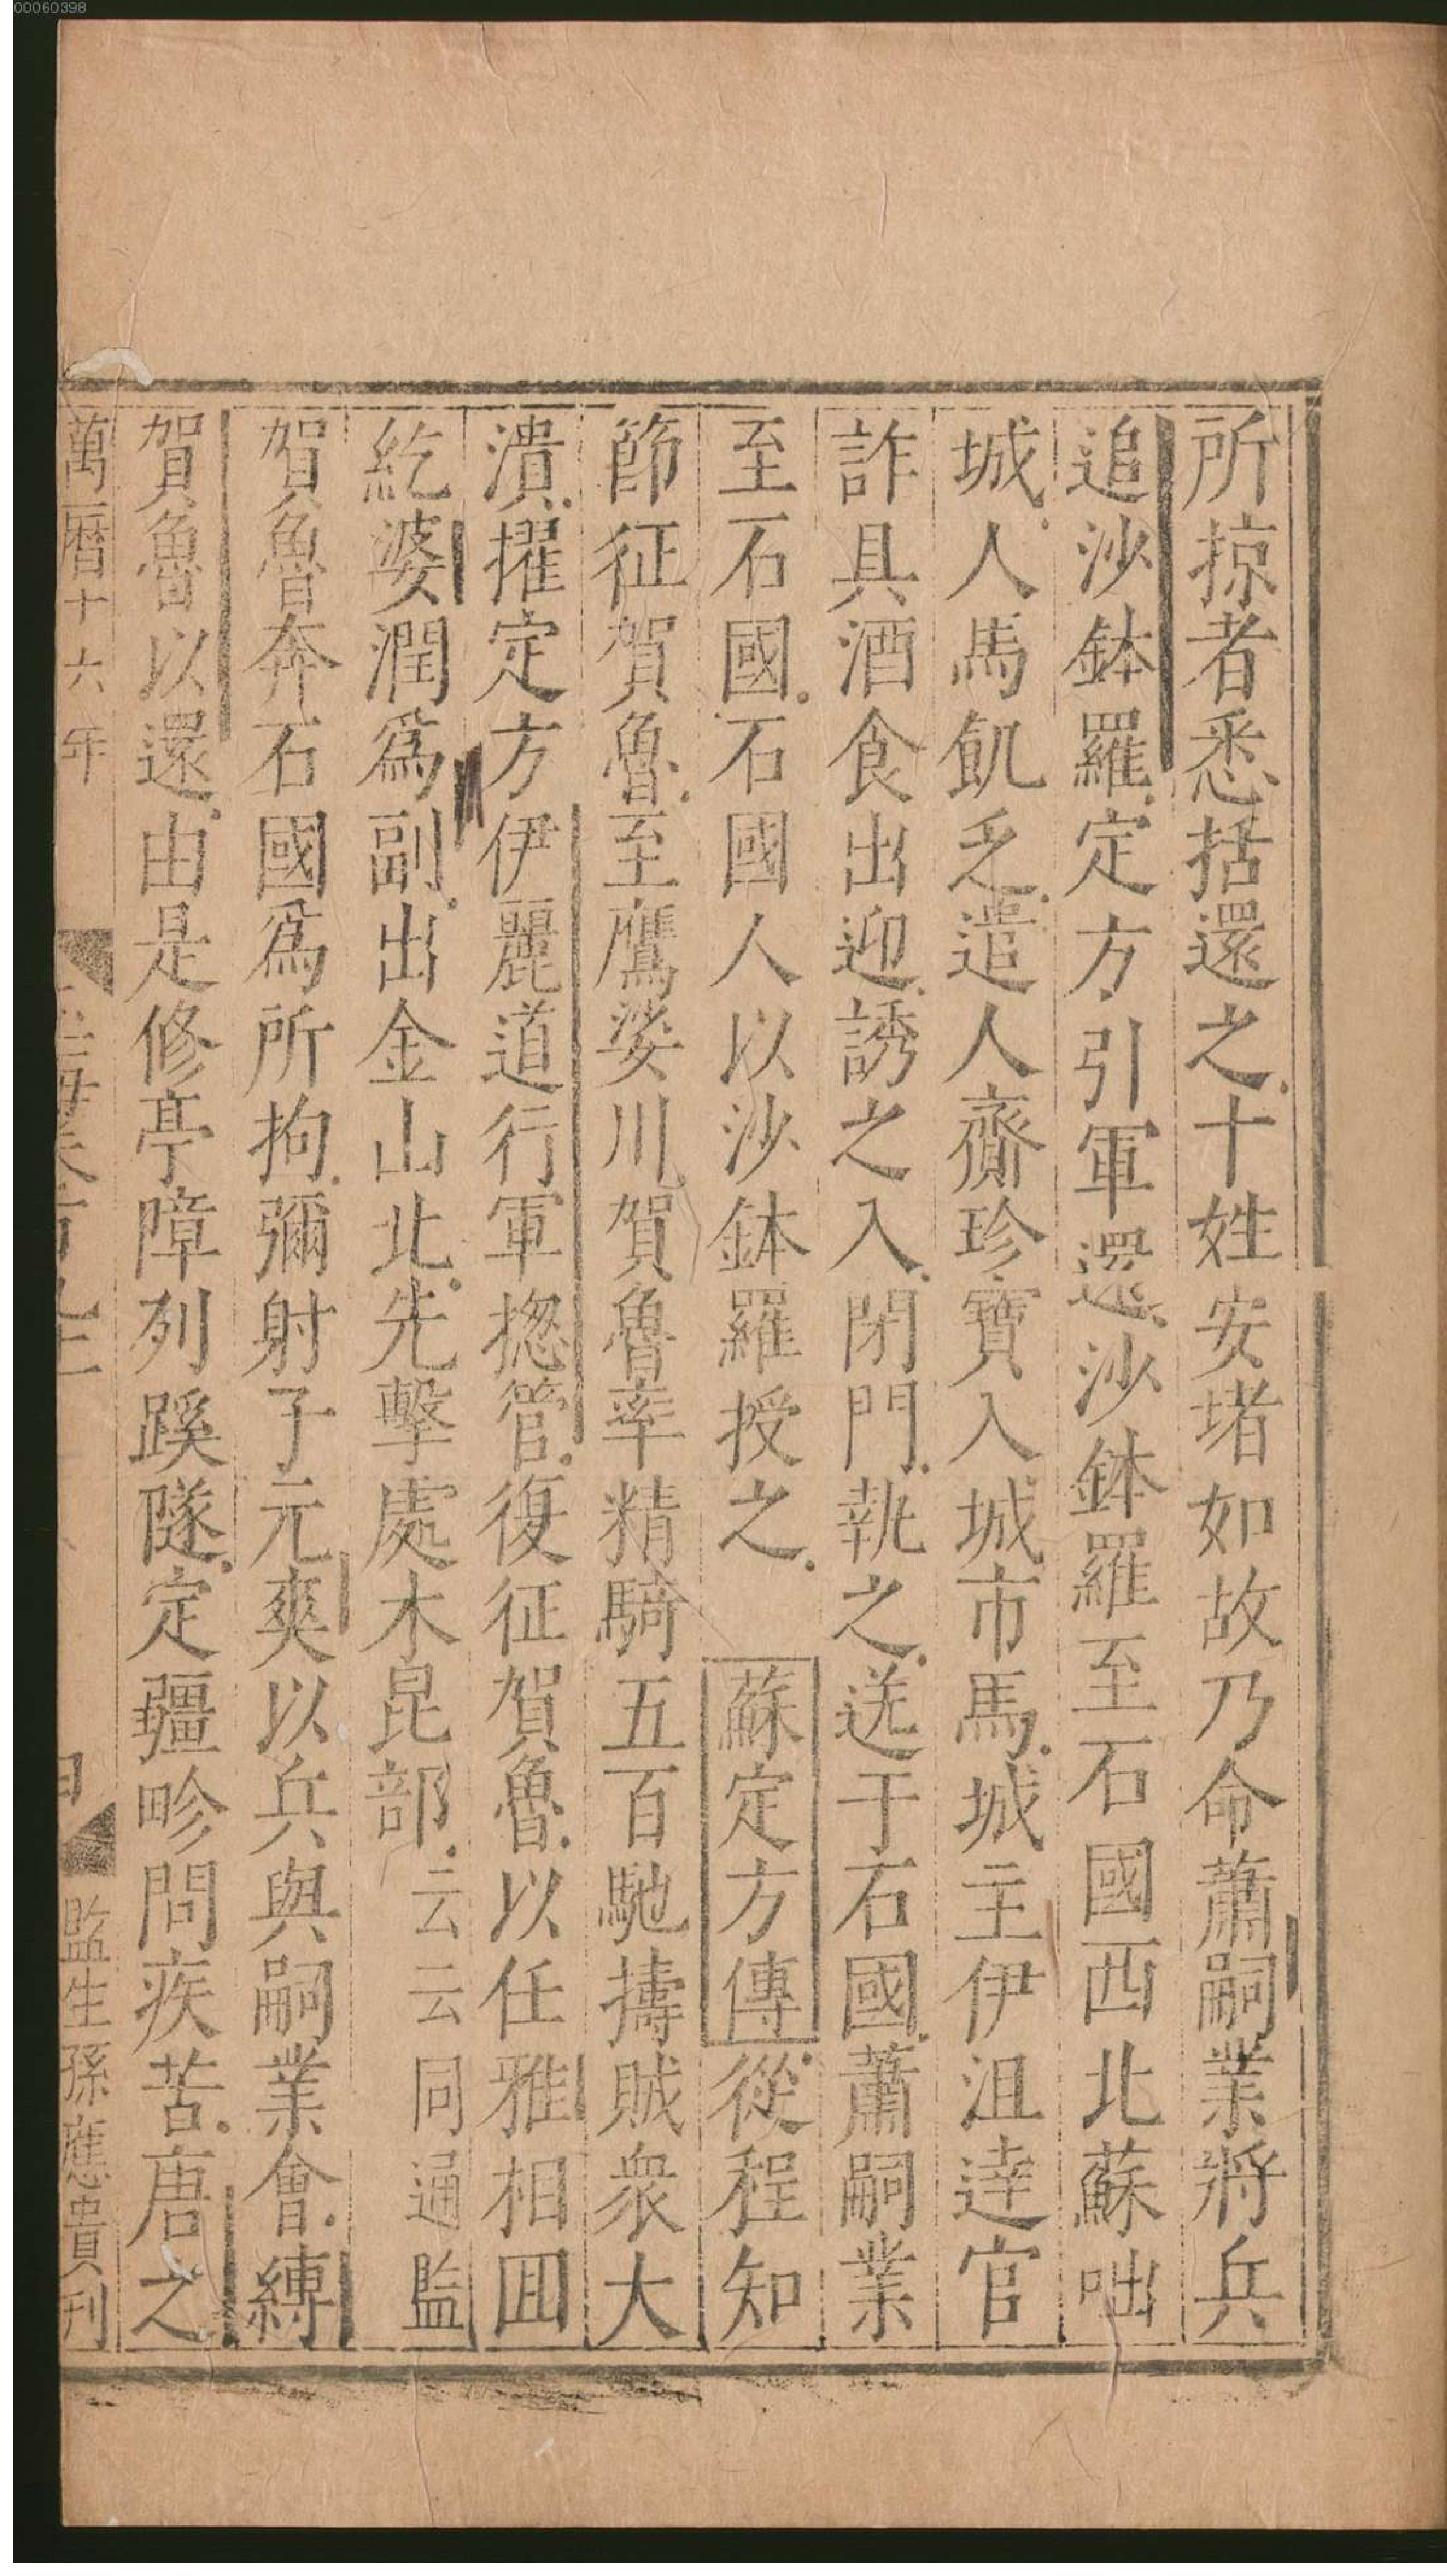 00060398
所掠者悉括還之十姓安堵如故乃命蕭嗣業將兵
追沙鉢羅定方引軍還沙鉢羅至石國西北蘇咄
城人馬飢乏遣人齎珍寶入城市馬城主伊沮達官
詐具酒食出迎誘之入閉門執之送于石國蕭嗣業
至石國石國人以沙鉢羅授之 蘇定方傳從程知
節征賀魯至鷹娑川賀魯率精騎五百馳擣賊衆大
潰擢定方伊麗道行軍揔管復征賀魯以任雅相囬
紇婆潤爲副出金山北先擊處木昆部云云同通監
賀魯奔石國爲所拘彌射子元爽以兵與嗣業會縛
賀魯以還由是修亭障列蹊隧定疆畛問疾苦唐之
萬曆十六年 卷百九十二 監生孫應貴刊